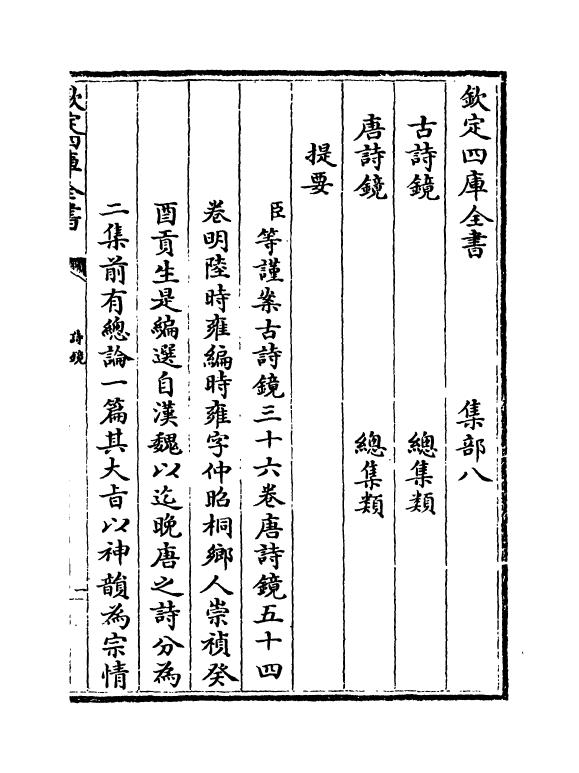 欽定四庫全書　集部八
古詩鏡　總集類
唐詩鏡　總集類
提要
臣等謹案古詩鏡三十六卷唐詩鏡五十四
卷明陸時雍編時雍字仲昭桐鄉人崇禎癸
酉貢生是編選自漢魏以迄晚唐之詩分為
二集前有總論一篇其大旨以神韻為宗情
欽定四庫全書　詩鏡　一